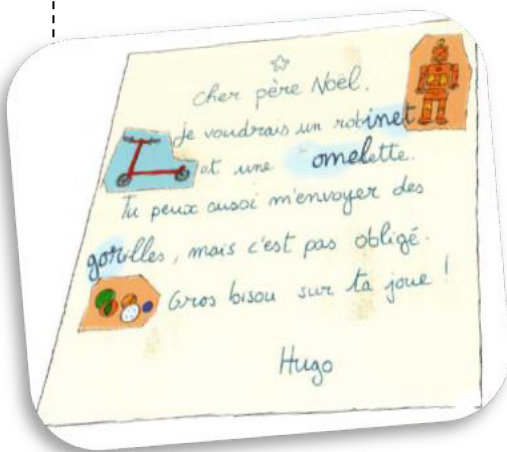 cher père Noël,
je voudrais un robinet
et une omelette.
Tu peux aussi m'envoyer des
gorilles, mais c'est pas obligé.
Gros bisou sur ta joue !
Hugo